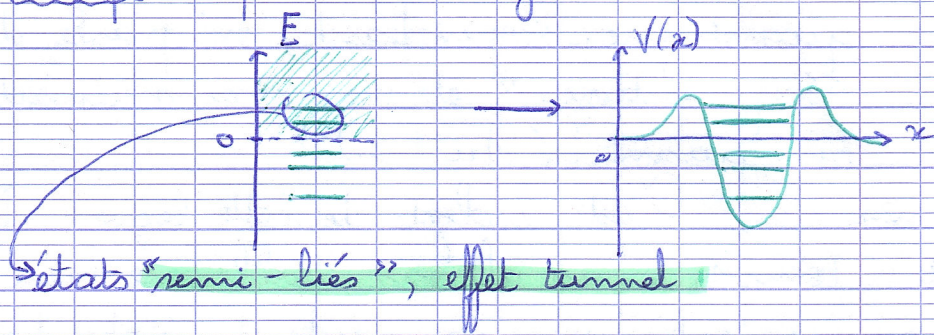 E
V(x)
0
0
x
états "semi-liés", effet tunnel